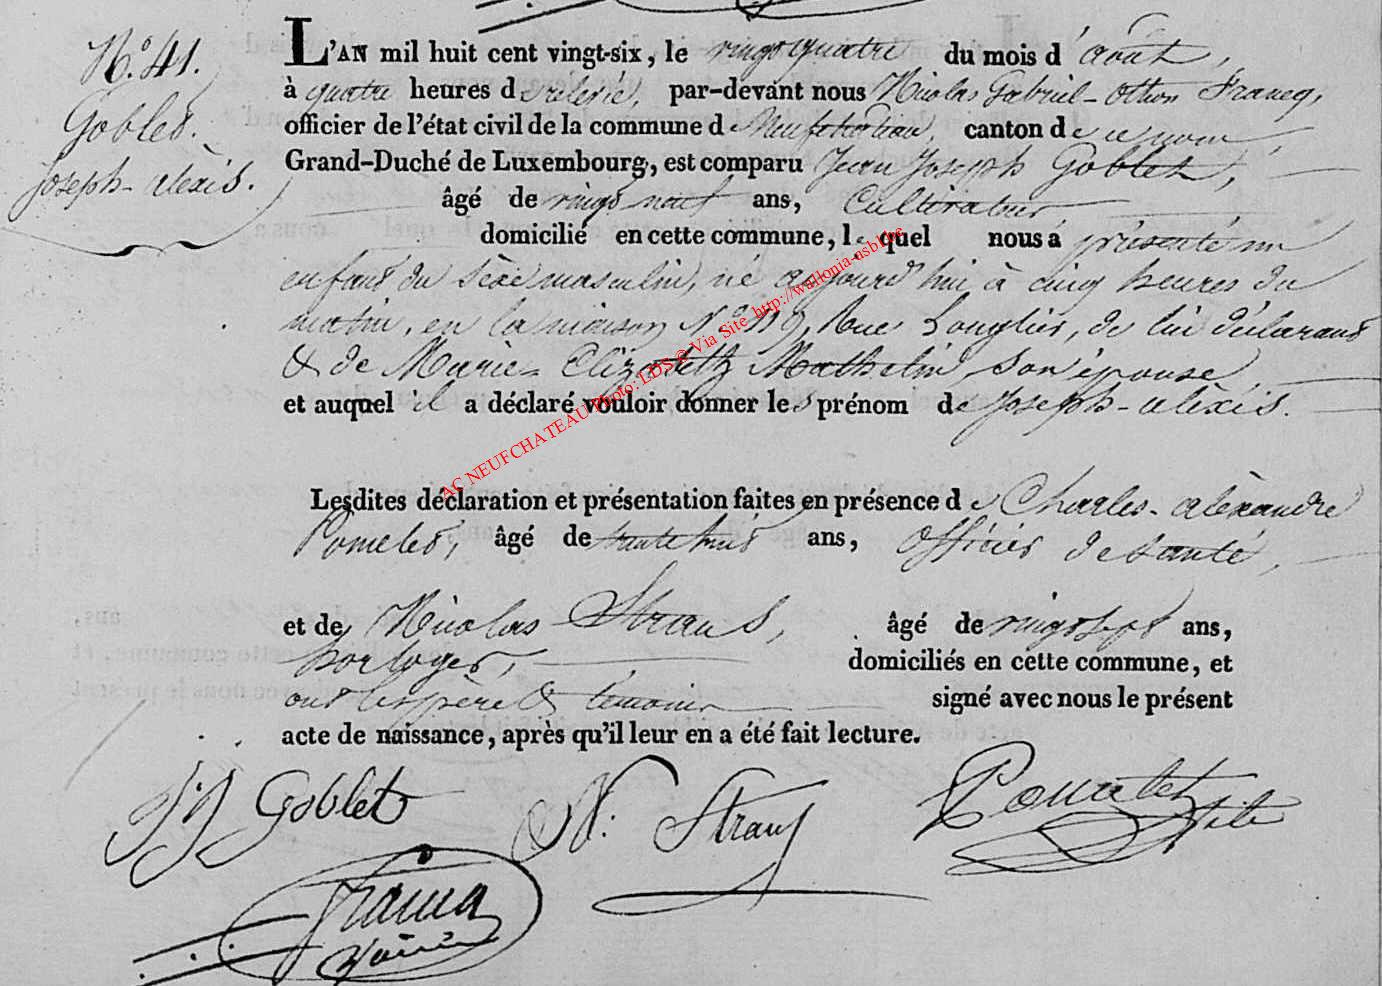 N.° 41.
Goblet.
Joseph-alexis.
L'AN mil huit cent vingt-six, le vingt quatre du mois d'août,
à quatre heures de relevée, par-devant nous Nicolas Gabriel-Othon Francq,
officier de l'état civil de la commune de Neufchateau, canton de ce nom,
Grand-Duché de Luxembourg, est comparu Jean Joseph Goblet,
âgé de vingt neuf ans, Cultivateur
domicilié en cette commune, lequel nous a présenté un
enfant du sèxe masculin, né aujourd'hui à cinq heures du
matin, en la maison N.° 119, Rue Longlier, de lui déclarant
& de Marie-Elizabeth Mathelin, son épouse,
et auquel il a déclaré vouloir donner les prénom de Joseph-alèxis.
Lesdites déclaration et présentation faites en présence de Charles-alèxandre
Pomelet, âgé de trente trois ans, officier de santé,
et de Nicolas Straus, âgé de vingt sept ans,
horloger, domiciliés en cette commune, et
ont les père & témoins signé avec nous le présent
acte de naissance, après qu'il leur en a été fait lecture.
JJ Goblet N. Straus
AC NEUFCHATEAU Photo: LDS @ Via Site http://wallonia-asbl.be